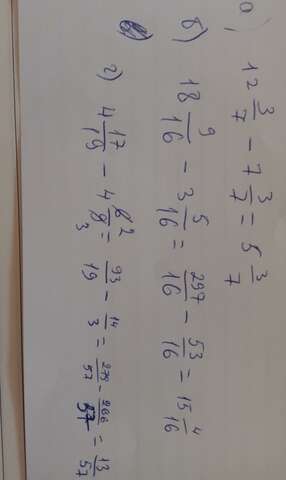 а) 12 3/7 - 7 3/7 = 5 3/7
б) 18 9/16 - 3 5/16 = 297/16 - 53/16 = 15 4/16
в)
г) 4 17/19 - 4 6 2/9 3 = 93/19 - 14/3 = 279/57 - 266/57 = 13/57